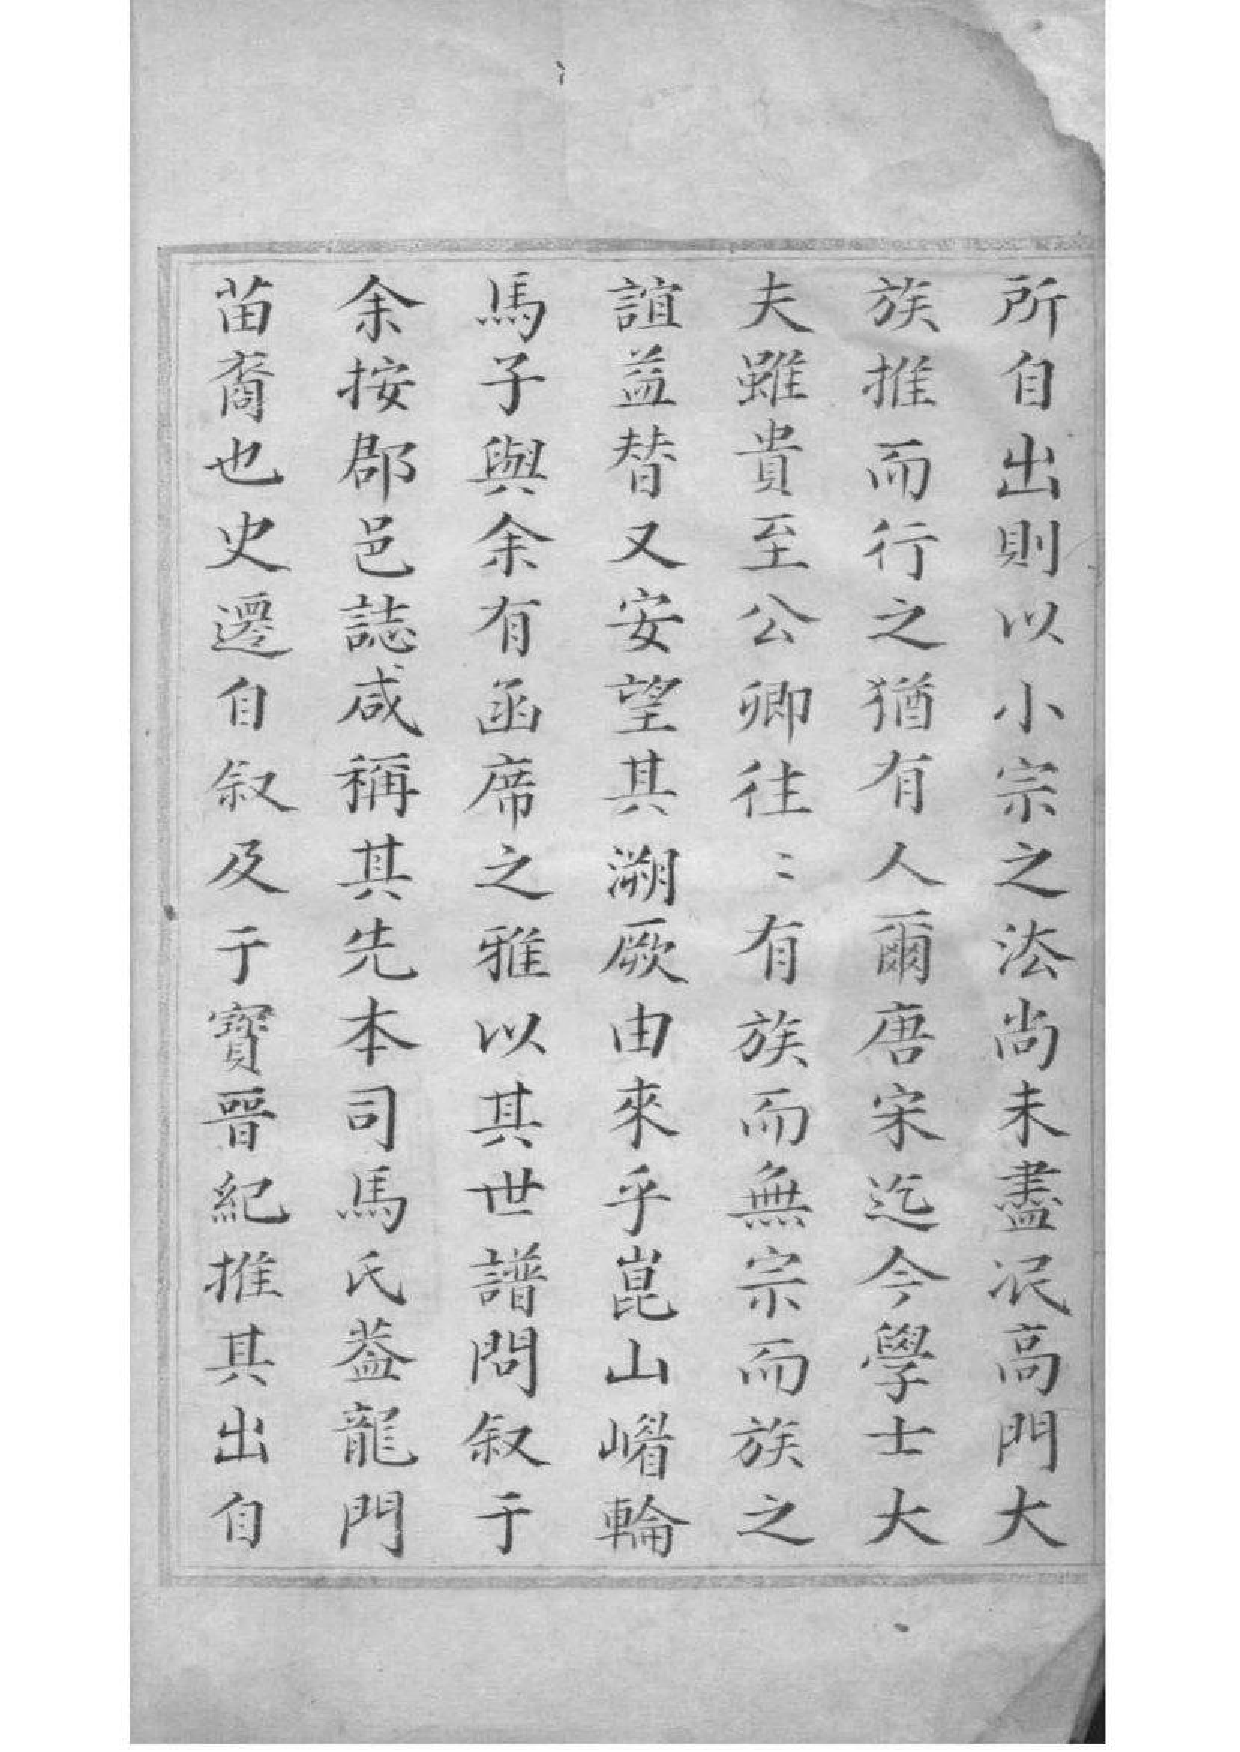 所自出則以小宗之法尚未盡泯高門大
族推而行之猶有人爾唐宋迄今學士大
夫雖貴至公卿往〻有族而無宗而族之
誼益替又安望其溯厥由來乎崑山㟭輪
馬子與余有函席之雅以其世譜問叙于
余按郡邑誌咸稱其先本司馬氏葢龍門
苗裔也史遷自叙及于寶晉紀推其出自